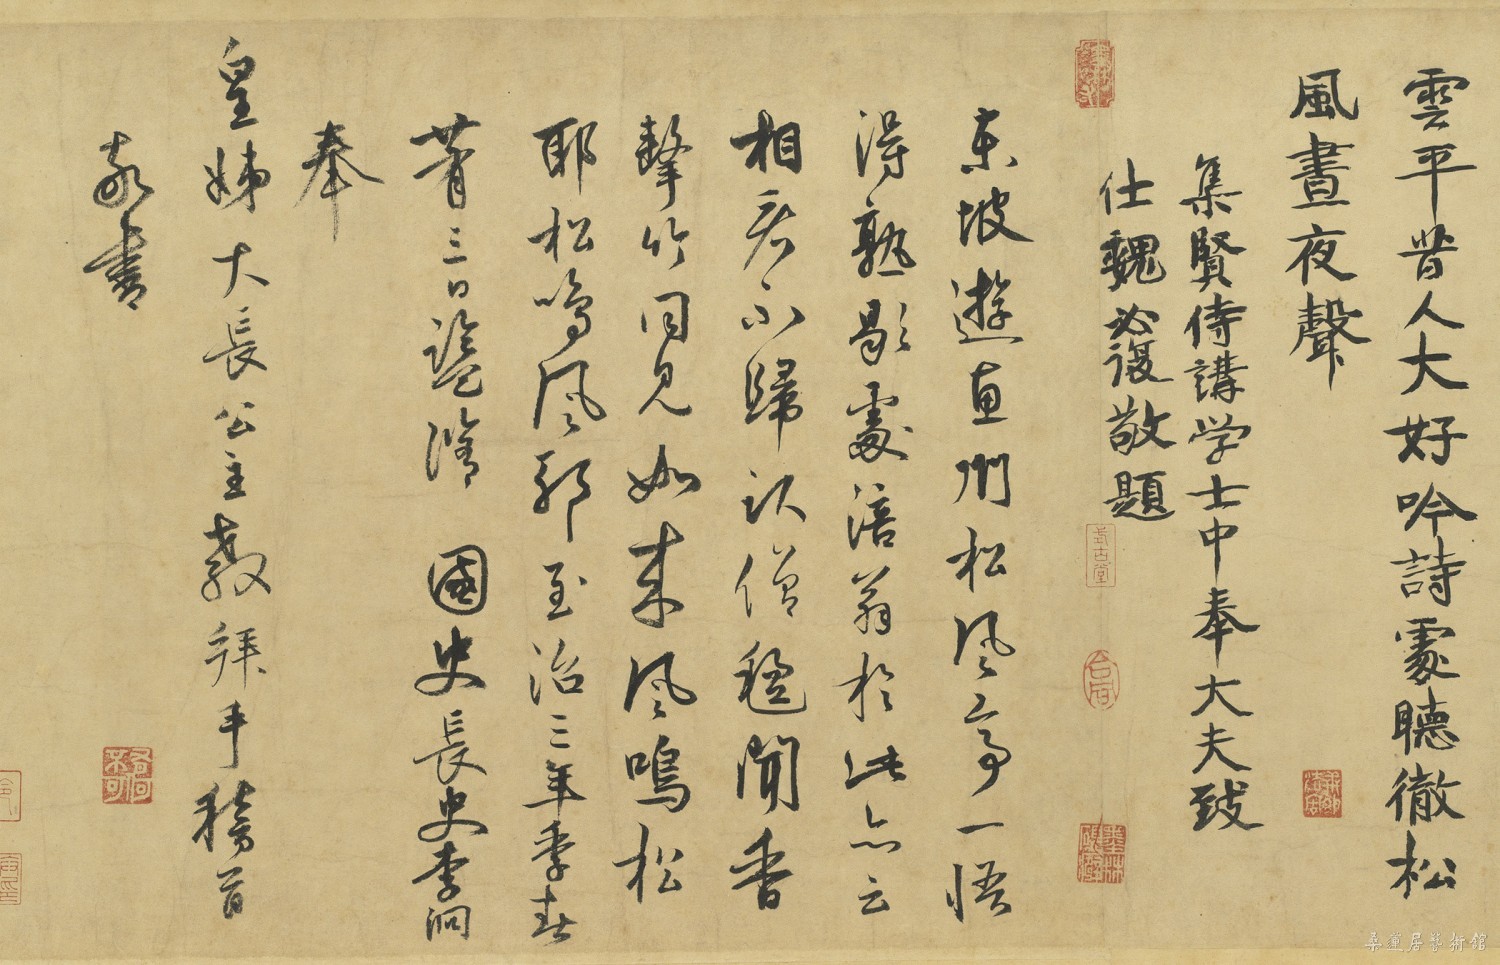 雲平昔人大好吟詩處聽徹松
風晝夜聲
集賢侍講学士中奉大夫致
仕魏必復敬題
東坡遊惠州松風亭一悟
得熟歇處涪翁於此亦云
相君不歸認僧氊聞香
擊竹同見如來風鳴松
耶松鳴風耶至治三年季春
莆三日
國史長史李洞
奉
皇姊大長公主教拜手稽首
敬書
式古堂
桑蓮居藝術館